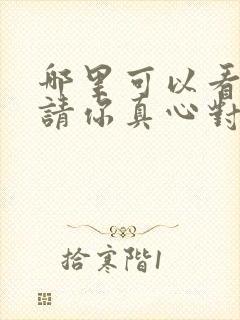 哪里可以看
請你真心對
拾寒階1